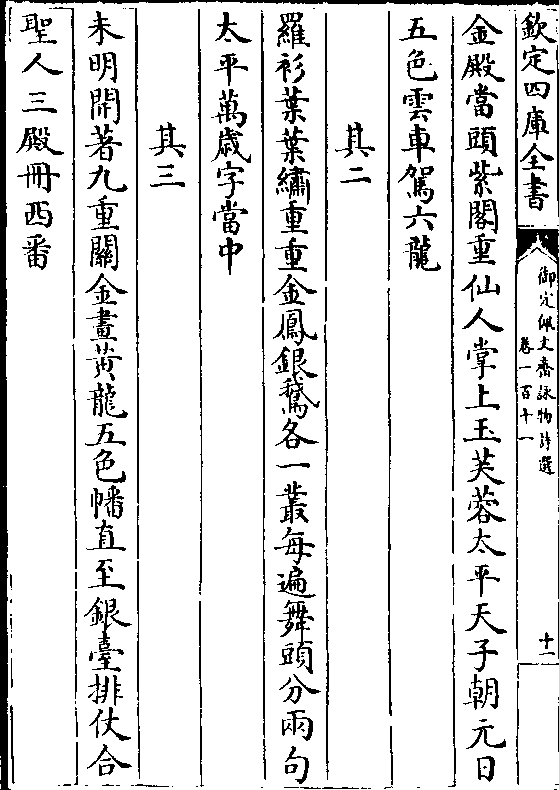 欽定四庫全書
御定佩文齋詠物詩選
卷一百十一
十一
金殿當頭紫閣重仙人掌上玉芙蓉太平天子朝元日
五色雲車駕六龍
其二
羅衫葉葉繡重重金鳳銀鵞各一叢每遍舞頭分兩句
太平萬歲字當中
其三
未明開著九重關金畫黃龍五色幡直至銀臺排仗合
聖人三殿冊西番